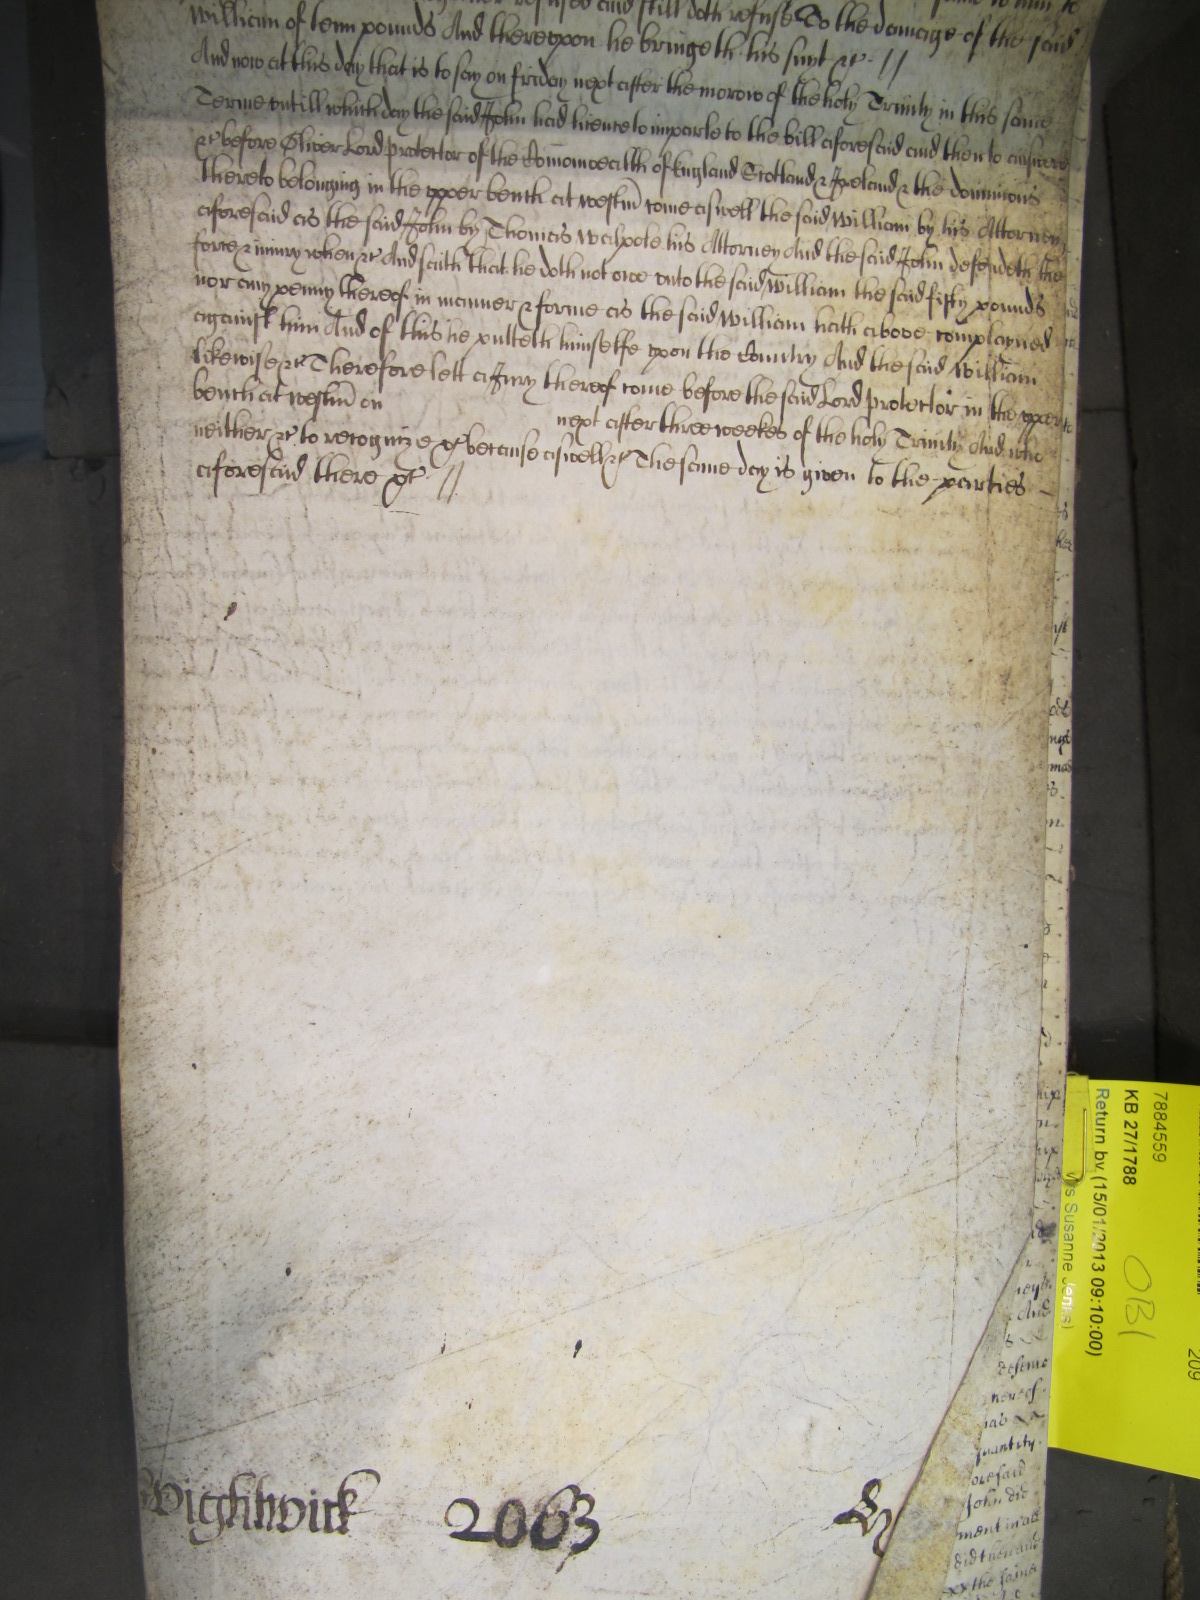 refused and still doth refuse To the damage of the said
William of tenn pounds And thereupon he bringeth his suut &c //
And now at this day that is to say on friday next after the morow of the holy Trinity in this same
Terme untill which day the said John had licence to imparle to the bill aforesaid and then to answere
&c before Oliver Lord protector of the Comonwealth of England Scotland & Ireland & the dominions
thereto belonging in the upper bench at westm̄ come aswell the said William by his Attorney
aforesaid as the said John by Thomas Walpole his Attorney And the said John defendeth the
force & iniury when &c And saith that he doth not owe unto the said William the said fifty pounds
nor any penny thereof in manner & forme as the said William hath above complayned
against him And of this he putteth himselfe upon the Country And the said William
likewise &c Therefore lett a Jury thereof come before the said Lord protector in the upper
bench at westm̄ on next after three weekes of the holy Trinity And who
neither &c to recognize &c because aswell &c The same day is given to the parties
aforesaid there &c //
Wightwick 2063
7884559
KB 27/1788
Return by (15/01/2013 09:10:00)
s Susanne Jenks)
OBI
209
quantity
John did
ment in all
did then and
xx the same